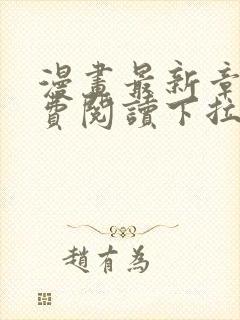 漫畫最新章
費閱讀下拉
趙有為